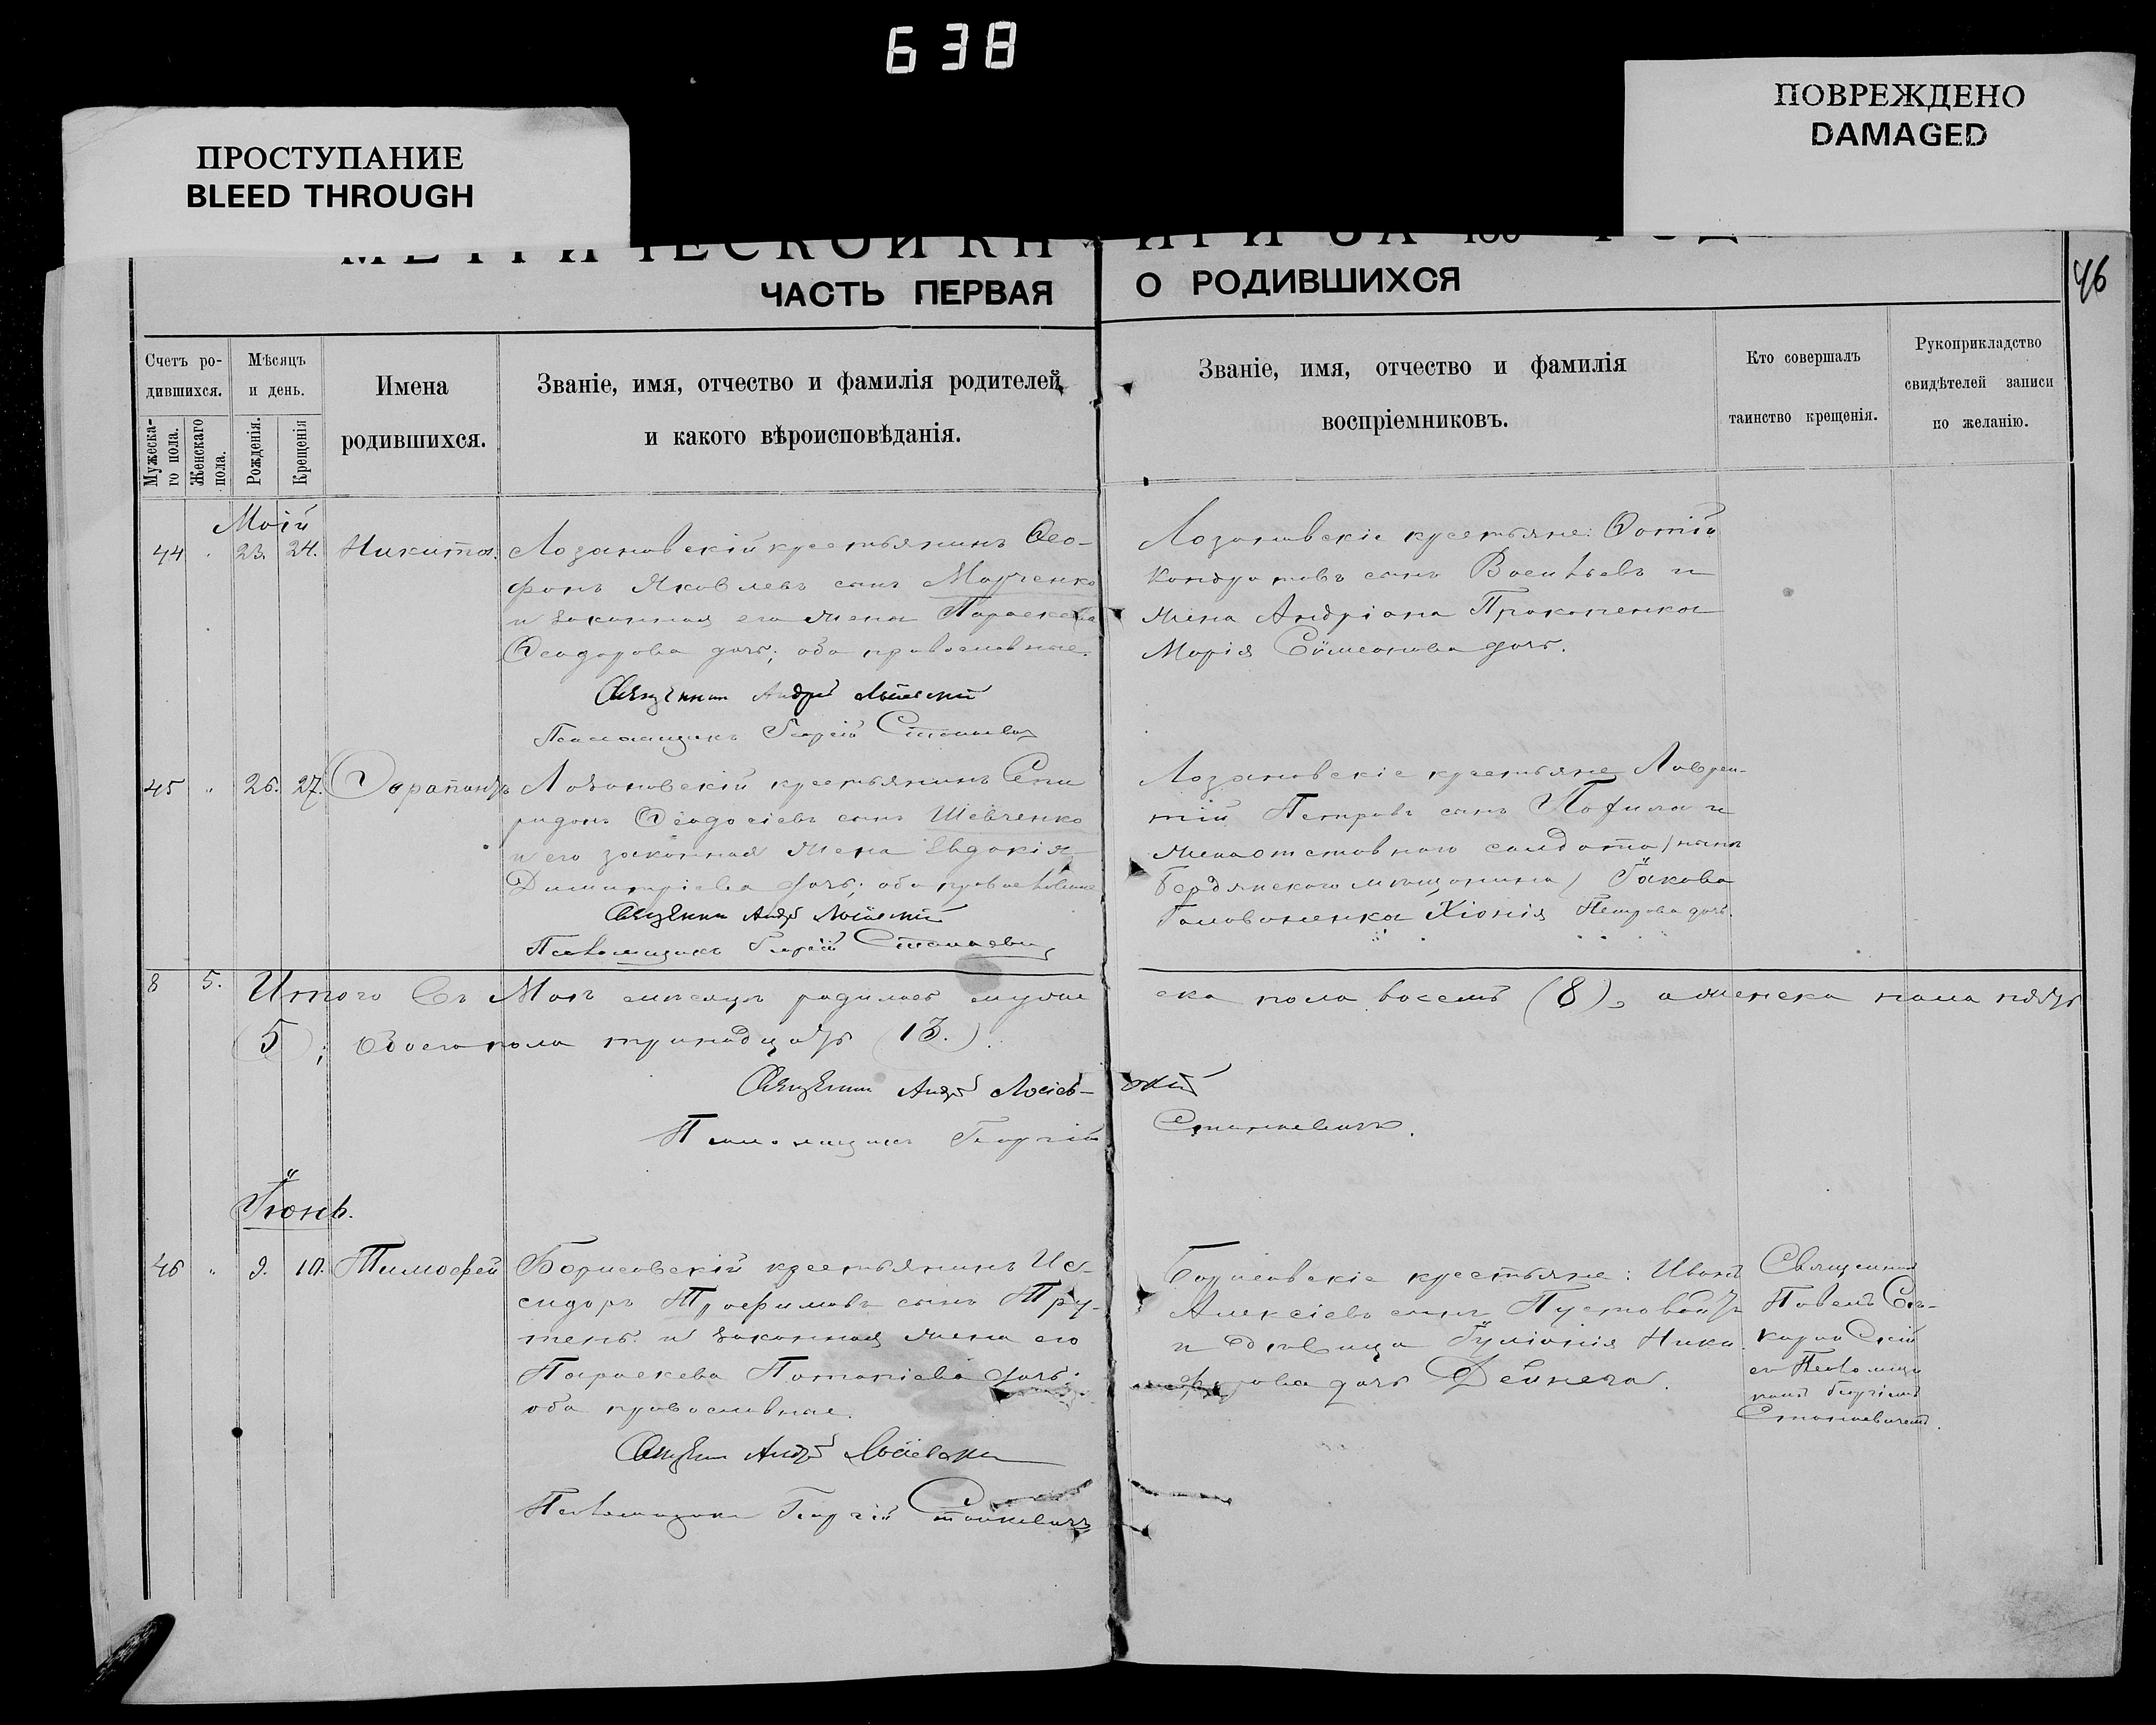 638
ПРОСТУПАНИЕ
BLEED THROUGH
ПОВРЕЖДЕНО
DAMAGED
МЕТРИЧЕСКОЙ КН
ЧАСТЬ ПЕРВАЯ О РОДИВШИХСЯ
46
Счетъ ро-
дившихся.
Мужеска-
го пола.
Женскаго
пола.
Мѣсяцъ
и день.
Рожденія.
Крещенія
Имена
родившихся.
Званіе, имя, отчество и фамилія родителей
и какого вѣроисповѣданія.
Званіе, имя, отчество и фамилія
воспріемниковъ.
Кто совершалъ
таинство крещенія.
Рукоприкладство
свидѣтелей записи
по желанію.
Май
44 23. 24. Никита.
Лозановскій крестьянинъ Ѳео-
фанъ Яковлевъ сынъ Марченко
и законная его жена Параскева
Ѳеодорова дочь; оба православные.
Священникъ Андрей
Псаломщикъ Георгій Станкевичъ
Лозановскіе крестьяне: Фотій
Кондратовъ сынъ Васильевъ и
жена Андріана Прокопенка
Марія Сѵмеонова дочь.
45 " 26. 27. Ѳерапонтъ
Лозановскій крестьянинъ Спи
ридонъ Ѳеодосіевъ сынъ Шевченко
и его законная жена Евдокія
Димитріева дочь; оба православные
Священникъ Андрей
Псаломщикъ Георгій Станкевичъ
Лозановскіе крестьяне Лаврен-
тій Петровъ сынъ и
жена отставного солдата (нынѣ
Бердянскаго мѣщанина) Іакова
Головоненка Хіонія Петрова дочь.
8 5. Итого въ Маѣ мѣсяцѣ родилось муже ска пола восемь (8), а женска пола пять
(5); обоего пола тринадцать (13.).
Священникъ Андрей Лосіев- скій
Псаломщикъ Георгій Станкевичъ.
Іюнь.
46 " 9. 10. Тимофей
Борисовскій крестьянинъ Ис-
сидоръ Трофимовъ сынъ Тру-
тень и законная жена его
Параскева Потапіева дочь;
оба православные.
Священникъ Андрей Лосіевскій
Псаломщикъ Георгій Станкевичъ
Борисовскіе крестьяне: Иванъ
Алексіевъ сынъ Пустовойтъ
и дѣвица Іуліанія Ники
форова дочь Дейнега.
Священникъ
Павелъ
съ Псаломщи
комъ Георгіемъ
Станкевичемъ.